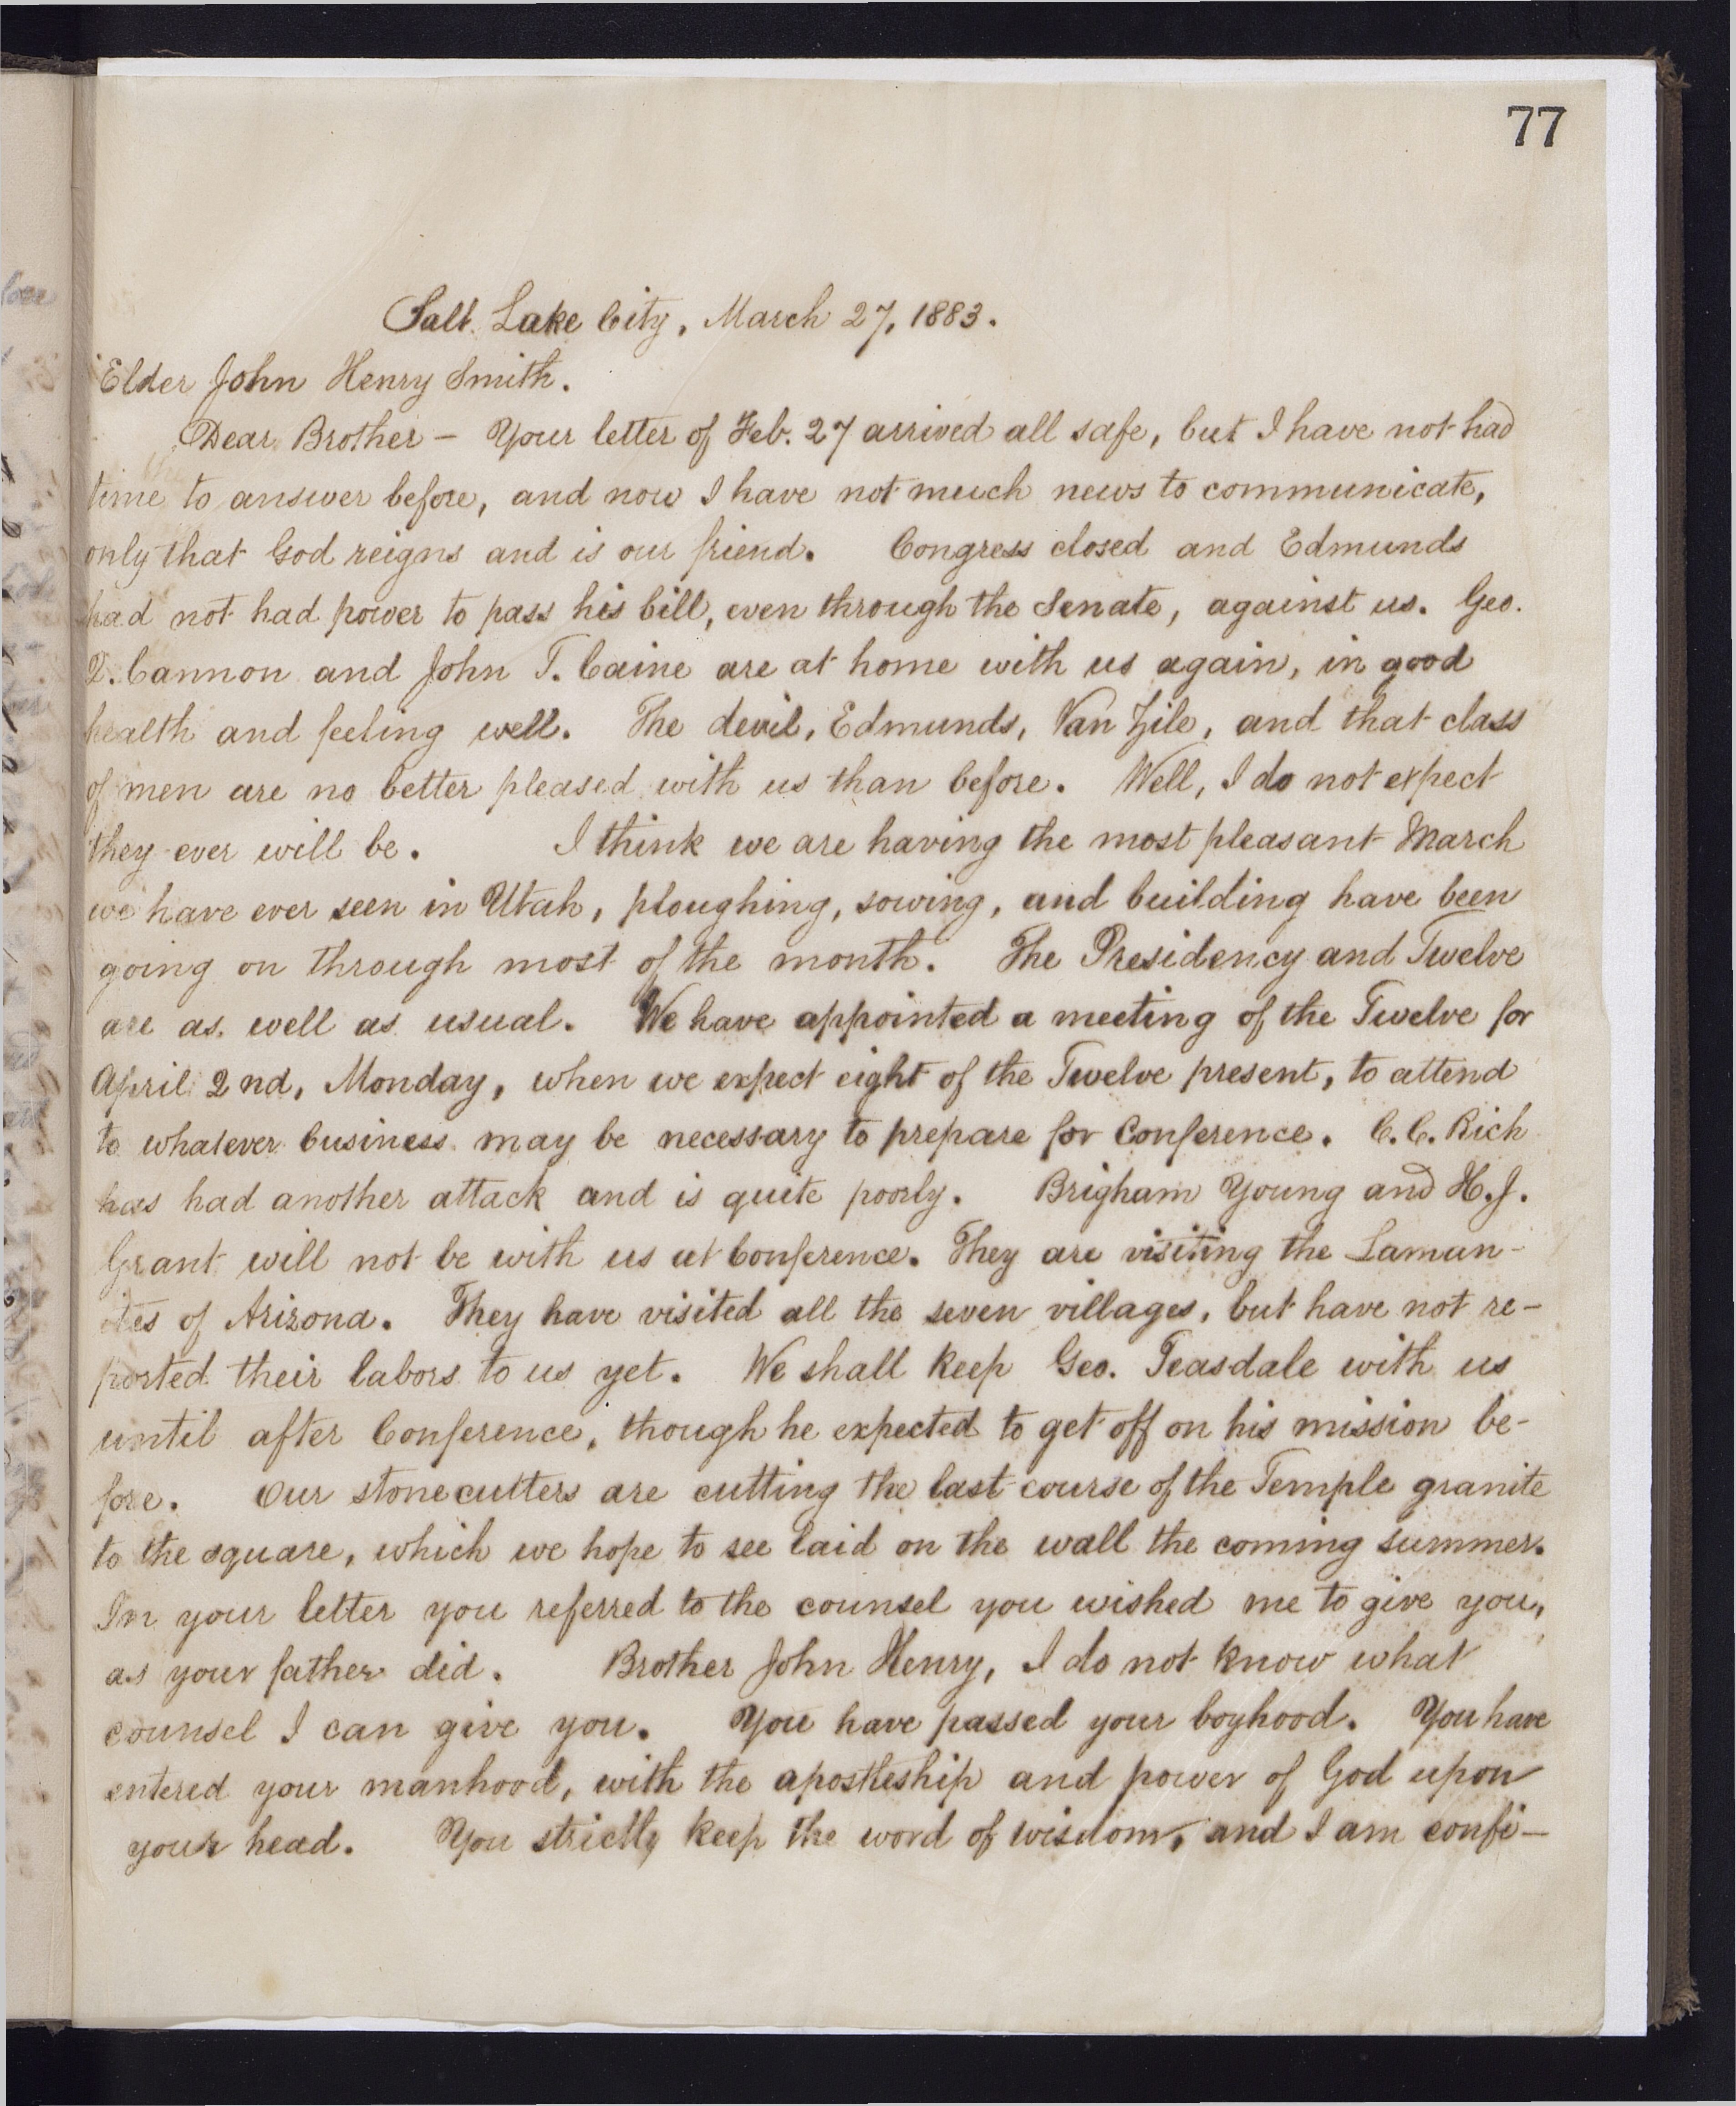 77
Salt Lake City, March 27, 1883.
Elder John Henry Smith.
Dear Brother – Your letter of Feb. 27 arrived all safe, but I have not had
time to answer before, and now I have not much news to communicate,
only that God reigns and is our friend. Congress closed and Edmunds
had not had power to pass his bill, even through the Senate, against us. Geo.
Q. Cannon and John T. Caine are at home with us again, in good
health and feeling well. The devil, Edmunds, Van Zile, and that class
of men are no better pleased with us than before. Well, I do not expect
they ever will be. I think we are having the most pleasant March
we have ever seen in Utah, ploughing, sowing, and building have been
going on through most of the month. The Presidency and Twelve
are as well as usual. We have appointed a meeting of the Twelve for
April 2nd, Monday, when we expect eight of the Twelve present, to attend
to whatever business may be necessary to prepare for Conference. C. C. Rich
has had another attack and is quite poorly. Brigham Young and H. J.
Grant will not be with us at Conference. They are visiting the Laman-
ites of Arizona. They have visited all the seven villages, but have not re-
ported their labors to us yet. We shall keep Geo. Teasdale with us
until after Conference, though he expected to get off on his mission be-
fore. Our stonecutters are cutting the last course of the Temple granite
to the square, which we hope to see laid on the wall the coming summer.
In your letter you referred to the counsel you wished me to give you,
as your father did. Brother John Henry, I do not know what
counsel I can give you. You have passed your boyhood. You have
entered your manhood, with the apostleship and power of God upon
your head. You strictly keep the word of wisdom, and I am confi-